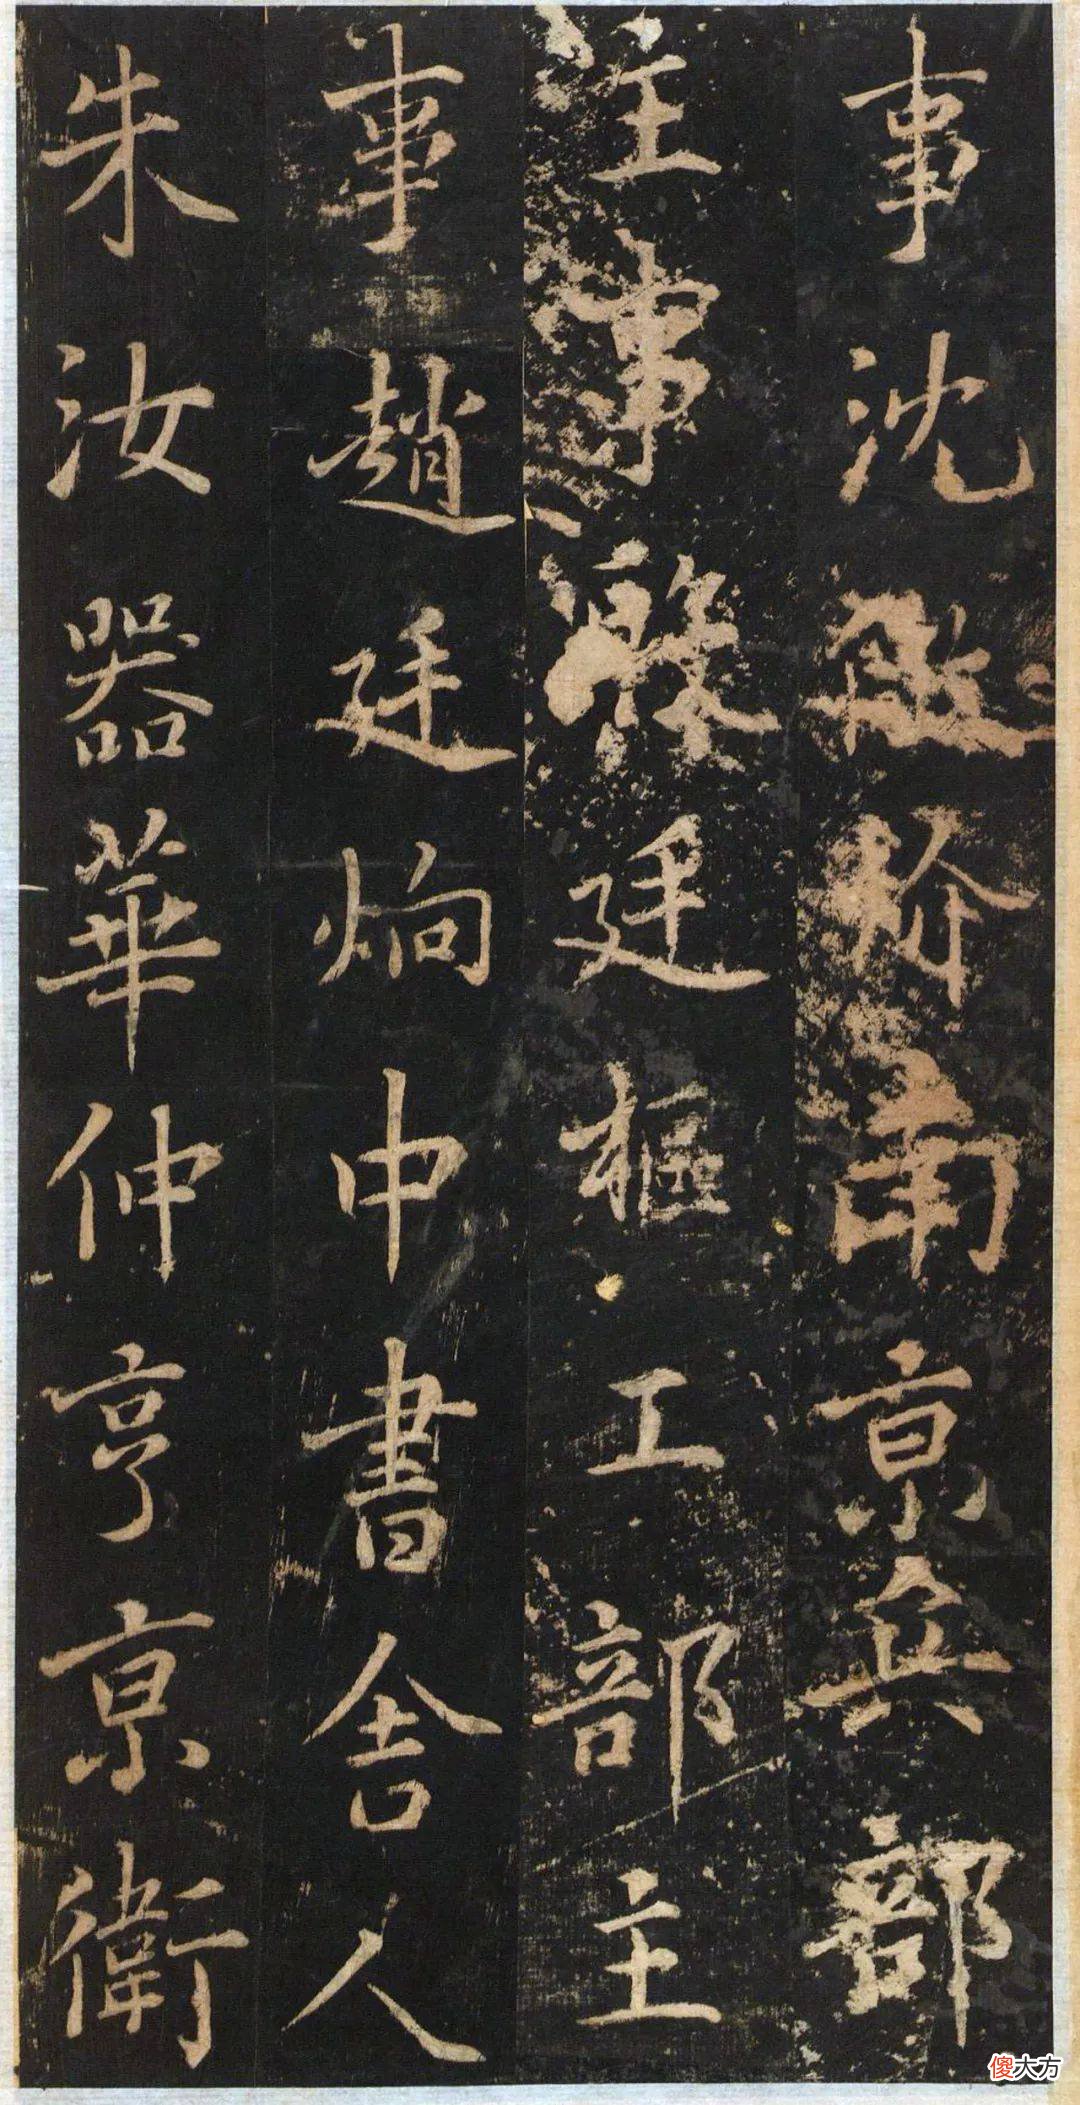 事沈南京兵部
主事廷樞工部主
事趙廷炯中書舍人
朱汝器華仲亨京衛
傻大方